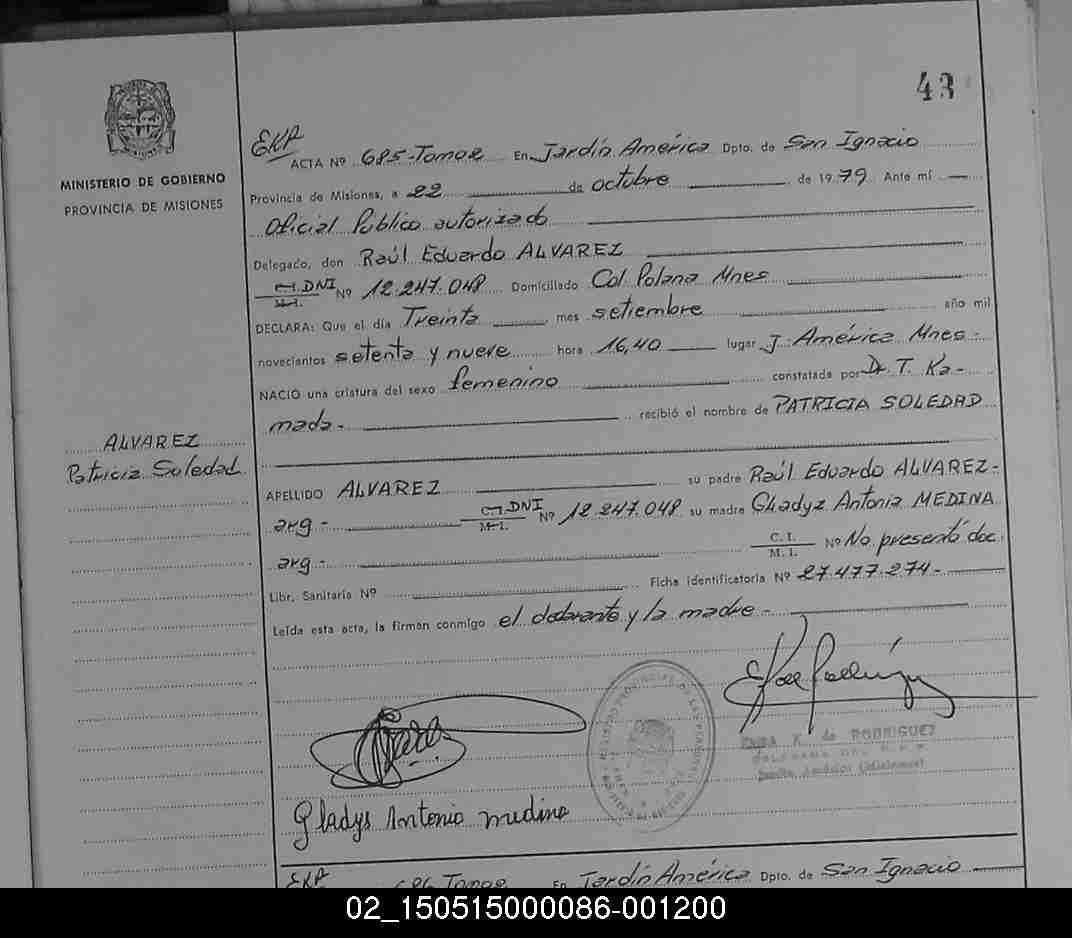 43
MINISTERIO DE GOBIERNO
PROVINCIA DE MISIONES
EKR
ACTA Nº 685-Tomo2 En Jardín América Dpto. de San Ignacio
Provincia de Misiones, a 22 de octubre de 1979 Ante mí
Oficial Público autorizado
Delegado, don Raúl Eduardo ALVAREZ
C.I. DNI
M.I. Nº 12.247.048 Domiciliado Col Polana Mnes
DECLARA: Que el día Treinta mes setiembre año mil
novecientos setenta y nueve hora 16,40 lugar J. América Mnes-
NACIO una criatura del sexo femenino constatada por Dr. T. Ka-
mada- recibió el nombre de PATRICIA SOLEDAD
ALVAREZ
Patricia Soledad
APELLIDO ALVAREZ su padre Raúl Eduardo ALVAREZ-
arg- C.I. DNI
M.I. Nº 12.247.048 su madre Gladyz Antonia MEDINA
arg- C.I.
M.I. Nº No presentó doc.
Libr. Sanitaria Nº Ficha identificatoria Nº 27.477.274-
Leída esta acta, la firman conmigo el declarante y la madre-
K. de RODRIGUEZ
Gladys Antonio medina
EKR 686 Tomo2 En Jardín América Dpto. de San Ignacio
02_150515000086-001200